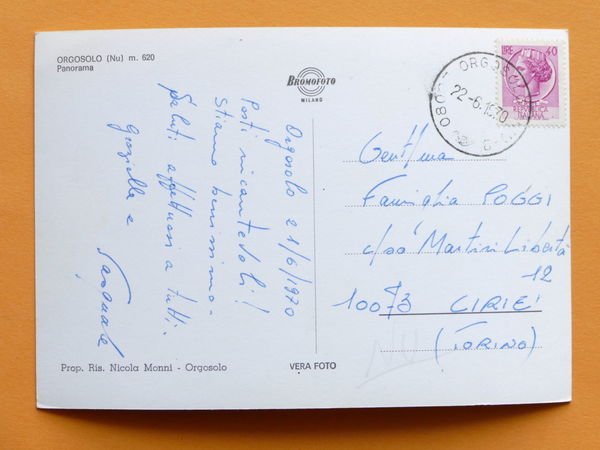 ORGOSOLO (Nu) m. 620
Panorama
BROMOFOTO
MILANO
Orgosolo 21/6/1970
Posti incantevoli!
Stiamo benissimo-
Saluti affettuosi a tutti.
Graziella e
Pasquale
LIRE 40
ORGOSOLO
22-6.1970
Gent/ma
Famiglia POGGI
c/so Martiri Libertà
12
10073 CIRIE'
(TORINO)
Prop. Ris. Nicola Monni - Orgosolo
VERA FOTO